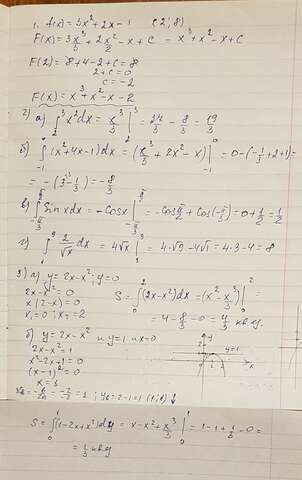 1. f(x)=3x²+2x-1 (2;8)
F(x)=3x³/3+2x²/2-x+C=x³+x²-x+C
F(2)=8+4-2+C=8
2+C=0
C=-2
F(x)=x³+x²-x-2
2) а) ∫₂³x²dx=x³/3|₂³=27/3-8/3=19/3
б) ∫₋₁⁰(x²+4x-1)dx=(x³/3+2x²-x)|₋₁⁰=0-(-1/3+2+1)=
=-(3-1/3)=-8/3
в) ∫ Sinxdx=-Cosx| =-Cosπ/2+Cos(-π/3)=0+1/2=1/2
г) ∫₁⁹2/√x dx=4√x|₁⁹=4·√9-4√1=4·3-4=8
3) а) y=2x-x²; y=0
2x-x²=0
x(2-x)=0
x₁=0; x₂=2
S=∫₀²(2x-x²)dx=(x²-x³/3)|₀²=
=4-8/3-0=4/3 кв.ед.
б) y=2x-x² и y=1 и x=0
2x-x²=1
x²-2x+1=0
(x-1)²=0
x=1
y
y=1
x
=1; y₆=2-1=1 (1;1)↓
S=∫₀¹(1-2x+x²)dx=x-x²+x³/3|₀¹=1-1+1/3-0=
=1/3 кв.ед